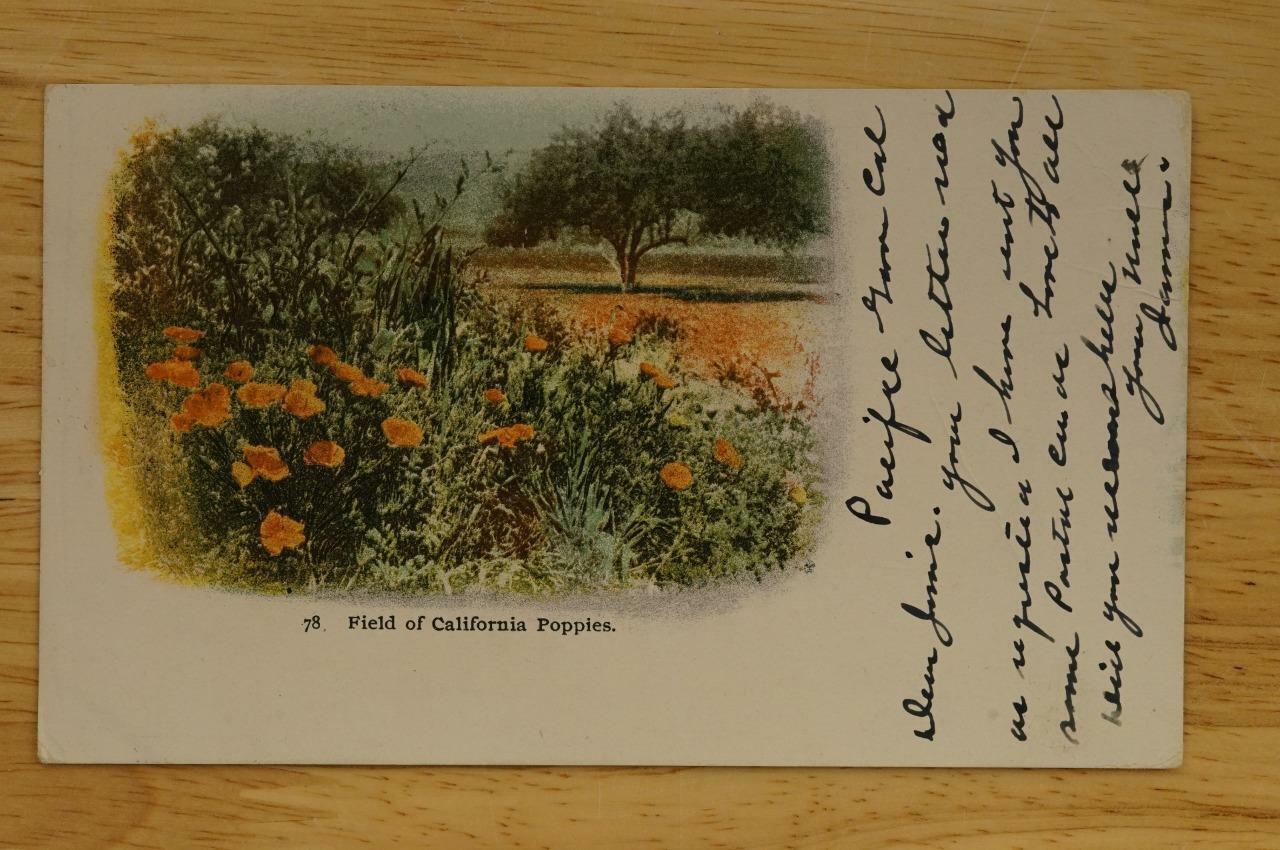 78. Field of California Poppies.
Pacific Grove Cal
Dear Jinnie. your letter read
as requested I have sent you
some Postal cards Love to all
will you
your Uncle
James.